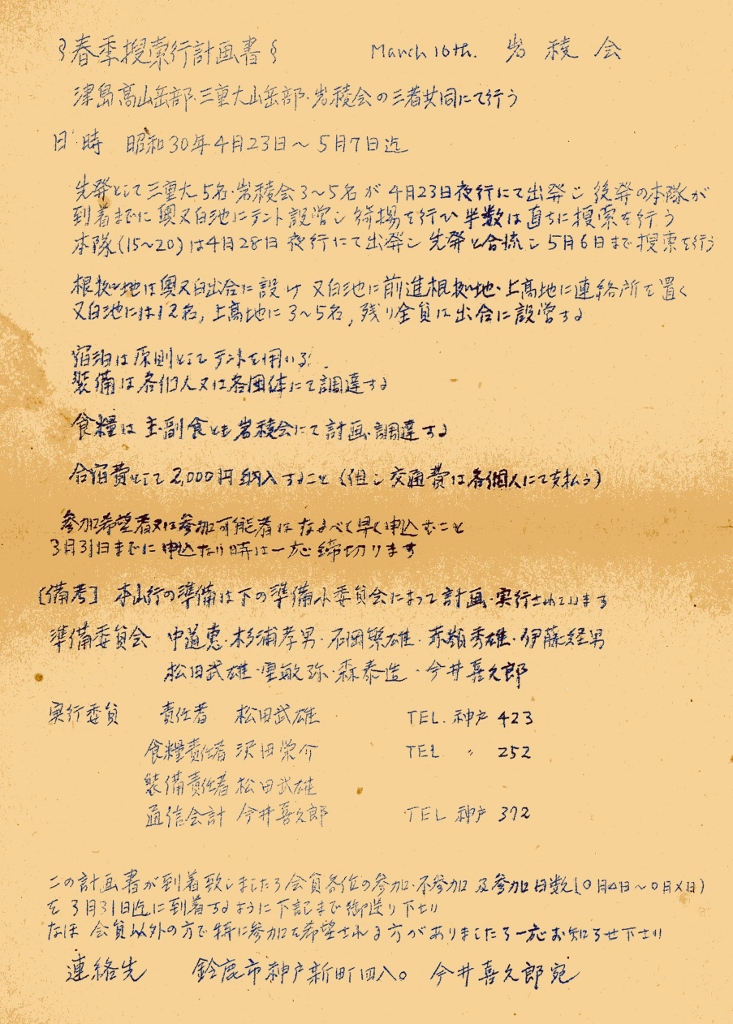 春季捜索行計画書 March 16th. 岩稜会
津島高山岳部・三重大山岳部・岩稜会の三者共同にて行う
日時 昭和30年4月23日〜5月7日迄
先発として三重大5名・岩稜会3〜5名が4月23日夜行にて出発し 後発の本隊が
到着までに奥又白池にテント設営し 荷揚を行い 半数は直ちに捜索を行う
本隊(15〜20)は4月28日夜行にて出発し 先発と合流し 5月6日まで捜索を行う
根拠地は奥又白出合に設け 又白池に前進根拠地・上高地に連絡所を置く
又白池には12名,上高地に3〜5名,残り全員は出合に設営する
宿泊は原則としてテントを用いる
装備は各個人又は各団体にて調達する
食糧は主・副食とも岩稜会にて計画・調達する
合宿費として2,000円納入すること(但し交通費は各個人にて支払う)
参加希望者又は参加可能者はなるべく早く申込むこと
3月31日までに申込なき時は一応締切ります
[備考] 本山行の準備は下の準備小委員会によって計画・実行されています
準備委員会 中道恵・杉浦孝男・石岡繁雄・赤嶺秀雄・伊藤経男
松田武雄・里敏弥・森泰造・今井喜久郎
実行委員 責任者 松田武雄 TEL. 神戸 423
食糧責任者 沢田栄介 TEL 〃 252
装備責任者 松田武雄
通信会計 今井喜久郎 TEL 神戸 372
この計画書が到着致しましたら会員各位の参加・不参加 及参加日数(〇月4日〜〇月X日)
を3月31日迄に到着するように下記まで御送り下さい
なほ 会員以外の方で特に参加を希望される方がありましたら一応お知らせ下さい
連絡先 鈴鹿市神戸新町四八〇 今井喜久郎宛